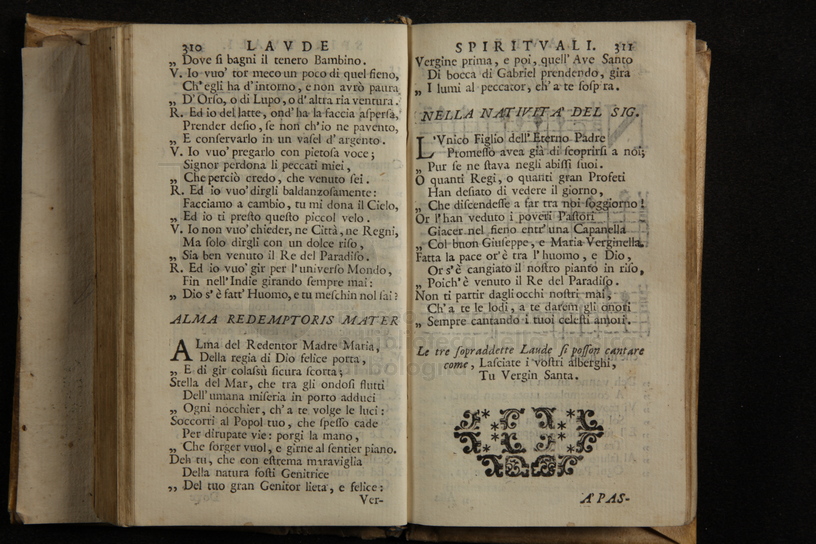 310 LAVDE
„ Dove ſi bagni il tenero Bambino.
V. Io vuo' tor meco un poco di quel fieno,
Ch' egli ha d' intorno, e non avrò paura
„ D' Orſo, o di Lupo, o d' altra ria ventura.
R. Ed io del latte, ond' ha la faccia aſperſa,
Prender deſio, ſe non ch' io ne pavento,
„ E conſervarlo in un vaſel d' argento.
V. Io vuo' pregarlo con pietoſa voce;
Signor perdona li peccati miei,
„ Che perciò credo, che venuto ſei.
R. Ed io vuo' dirgli baldanzoſamente:
Facciamo a cambio, tu mi dona il Cielo,
„ Ed io ti preſto queſto piccol velo.
V. Io non vuo' chieder, ne Città, ne Regni,
Ma ſolo dirgli con un dolce riſo,
„ Sia ben venuto il Re del Paradiſo.
R. Ed io vuo' gir per l' univerſo Mondo,
Fin nell' Indie girando ſempre mai:
„ Dio s' è fatt' Huomo, e tu meſchin nol ſai?
ALMA REDEMPTORIS MATER
ALma del Redentor Madre Maria,
Della regia di Dio felice porta,
„ E di gir colaſsù ſicura ſcorta;
Stella del Mar, che tra gli ondoſi flutti
Dell' umana miſeria in porto adduci
„ Ogni nocchier, ch' a te volge le luci:
Soccorri al Popol tuo, che ſpeſſo cade
Per dirupate vie: porgi la mano,
„ Che ſorger vuol, e girne al ſentier piano.
Deh tu, che con eſtrema maraviglia
Della natura foſti Genitrice
„ Del tuo gran Genitor lieta, e felice:
Ver-
SPIRITVALI. 311
Vergine prima, e poi, quell' Ave Santo
Di bocca di Gabriel prendendo, gira
„ I lumi al peccator, ch' a te ſoſpira.
NELLA NATIVITA' DEL SIG.
L'Vnico Figlio dell' Eterno Padre
Promeſſo avea già di ſcoprirſi a noi;
„ Pur ſe ne ſtava negli abiſſi ſuoi.
O quanti Regi, o quanti gran Profeti
Han deſiato di vedere il giorno,
„ Che diſcendeſſe a far tra noi ſoggiorno!
Or l' han veduto i poveri Paſtori
Giacer nel fieno entr' una Capanella
„ Col buon Giuſeppe, e Maria Verginella.
Fatta la pace or' è tra l' huomo, e Dio,
Or s' è cangiato il noſtro pianto in riſo,
„ Poich' è venuto il Re del Paradiſo.
Non ti partir dagli occhi noſtri mai,
Ch' a te le lodi, a te darem gli onori
„ Sempre cantando i tuoi celeſti amori.
Le tre ſopraddette Laude ſi poſſon cantare
come, Laſciate i voſtri alberghi,
Tu Vergin Santa.
A' PAS-